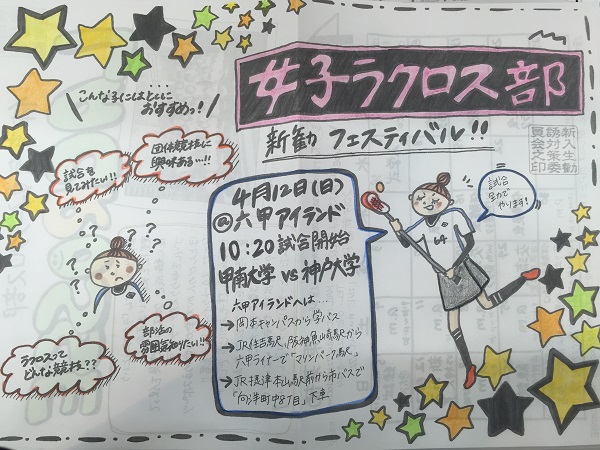 女子ラクロス部
新勧 フェスティバル!!
こんな子にはとくに
おすすめっ!
試合を
見てみたい!!
団体競技に
興味ある…!!
ラクロスって
どんな競技??
部活の
雰囲気知りたい!!
4月12日(日)
@六甲アイランド
10:20試合開始
甲南大学 vs 神戸大学
六甲アイランドへは…
→岡本キャンパスから学バス
→JR住吉駅、阪神魚崎駅から
六甲ライナーで「マリンパーク駅」
→JR摂津本山駅前から市バスで
「向洋町中8丁目」下車
試合
全力で
やります!
新入生勧
誘対策委
員会之印